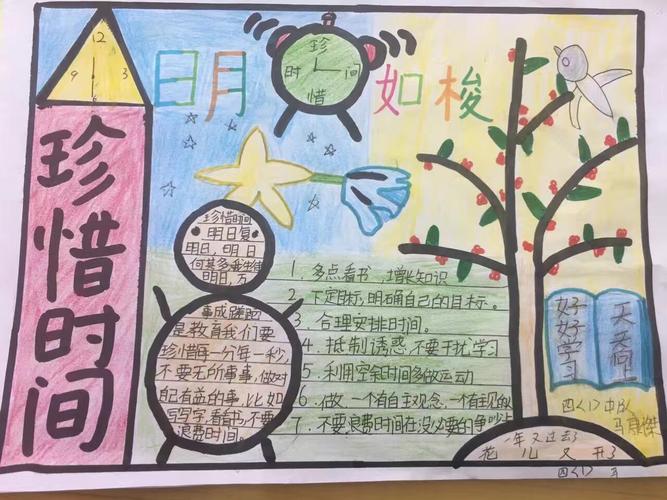 12
9 3
6
珍惜时间
日月如梭
珍
时 间
惜
珍惜时间
明日复
明日,明日
何其多我生待
明日,万
事成蹉跎
是教育我们要
珍惜每一分每一秒,
不要无所事事,做对
自己有益的事,比如
写写字,看看书,不要
浪费时间。
1、多点看书,增长知识
2、下定目标,明确自己的目标。
3、合理安排时间。
4、抵制诱惑,不要干扰学习
5、利用空余时间多做运动
6、做一个有自主观念,一个有主见的
7、不要浪费时间在没必要的争吵上
好好学习
天天向上
四〈1〉中队
马康傑
一年又过去了
花儿又开了
四〈1〉